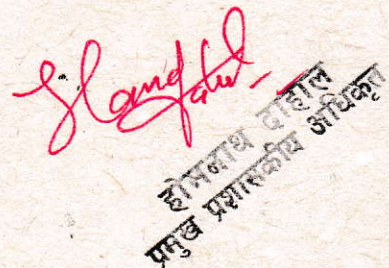 होमनाथ दाहाल
प्रमुख प्रशासकीय अधिकृत